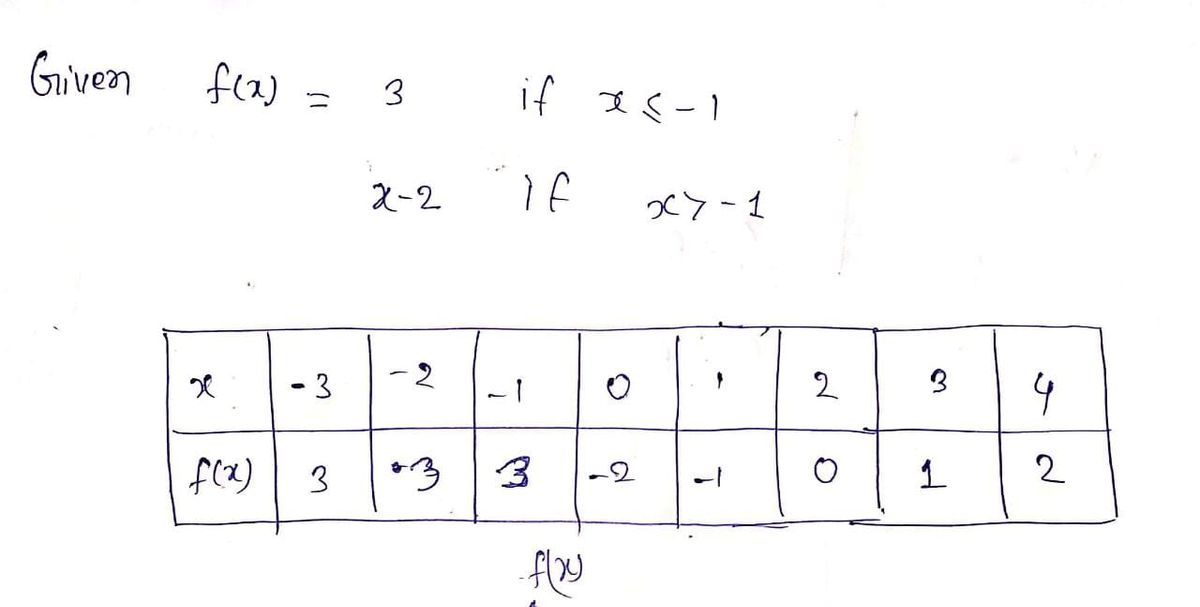 Given f(x) = 3 if x ≤ -1
x-2 if x > -1
x -3 -2 -1 0 1 2 3 4
f(x) 3 3 3 -2 -1 0 1 2
f(x)